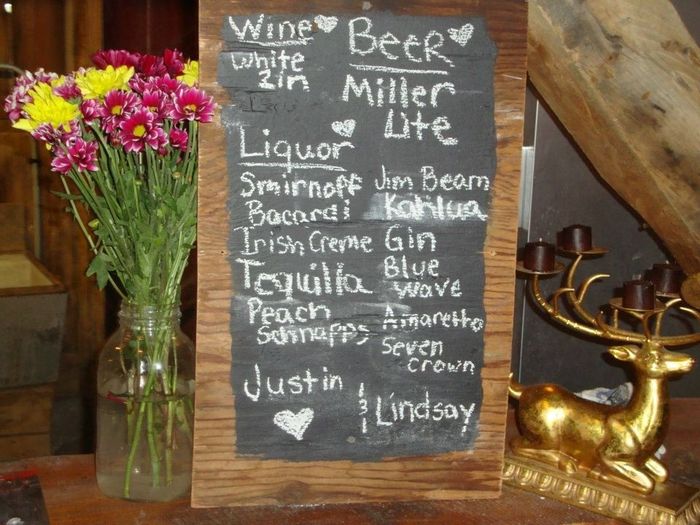 Wine
White
Zin
Beer
Miller
Lite
Liquor
Smirnoff
Bacardi
Irish Creme
Tequilla
Peach
Schnapps
Jim Beam
Kahlua
Gin
Blue
wave
Amaretto
Seven
crown
Justin
& Lindsay